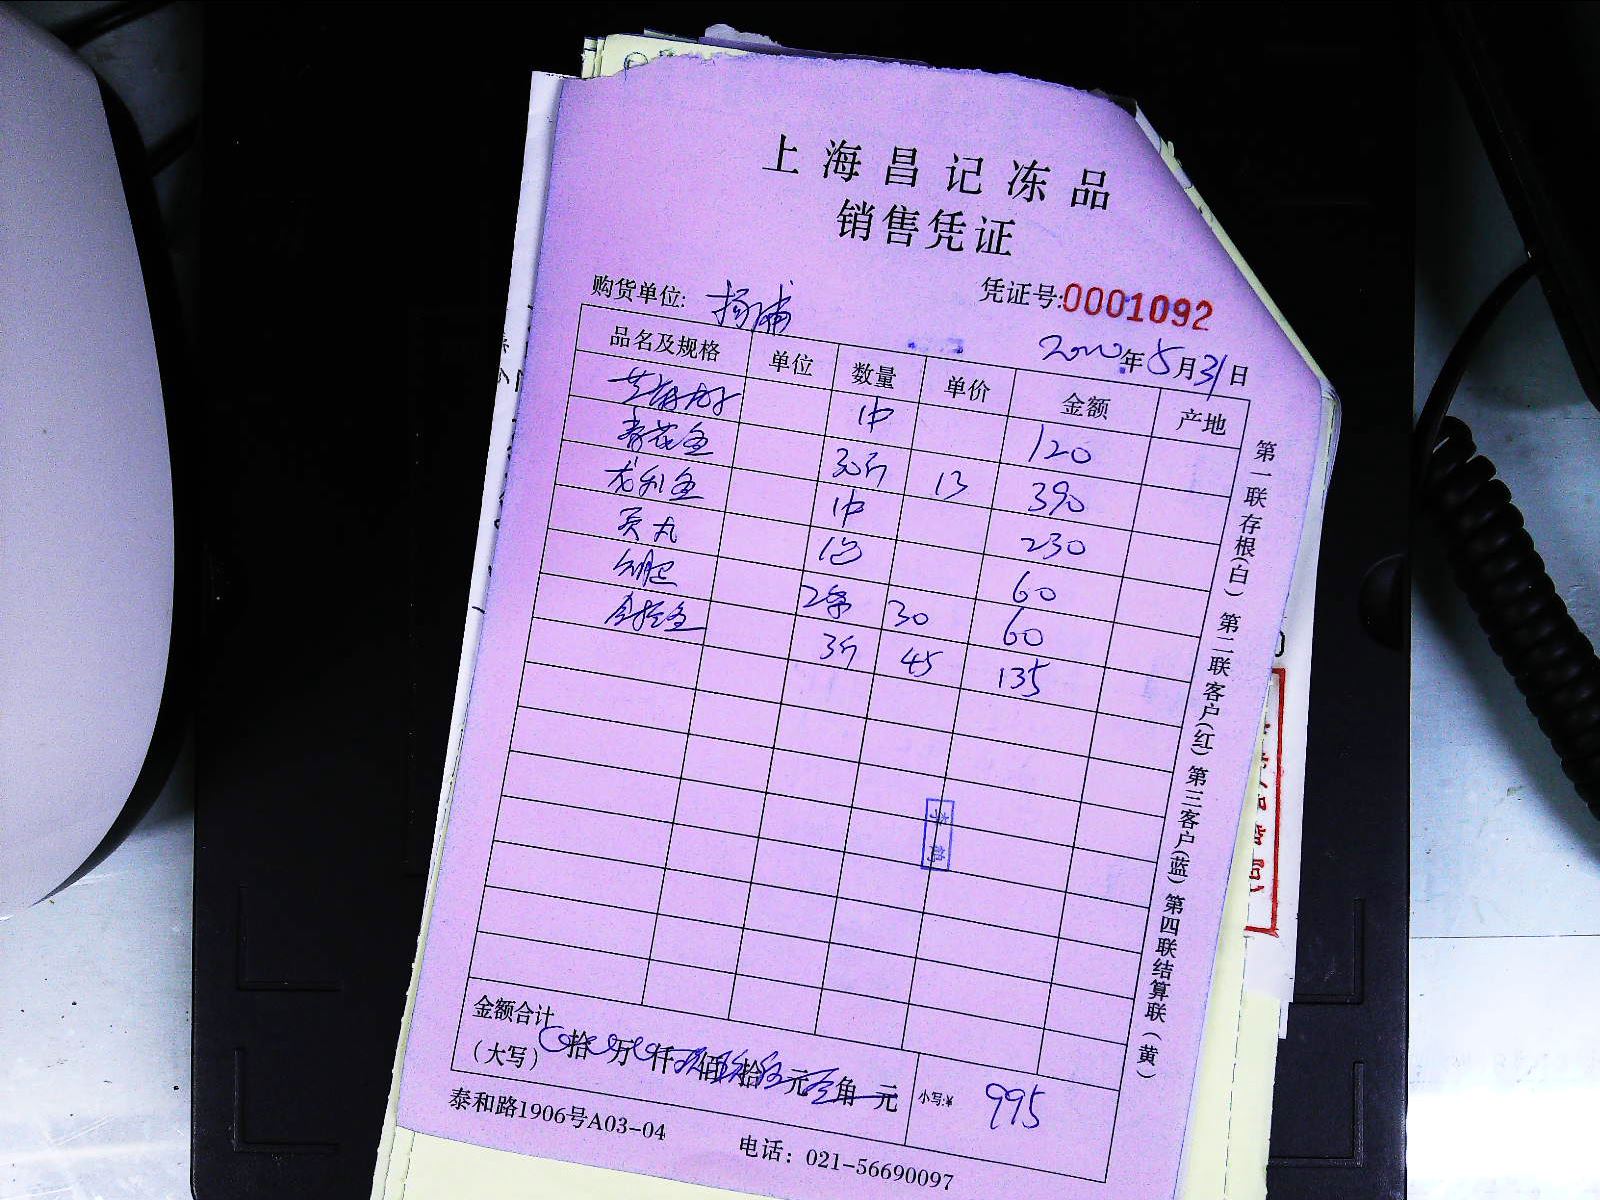 上海昌记冻品
销售凭证
购货单位: 杨浦
凭证号:0001092
2020年5月31日
品名及规格 单位 数量 单价 金额 产地
1中 120
青花鱼 30斤 13 390
龙利鱼 1中 230
贡丸 1包 60
2条 30 60
3斤 45 135
金额合计
(大写) 拾 万 仟 佰 拾 元 角 元 小写:¥ 995
泰和路1906号A03-04 电话: 021-56690097
第一联存根(白) 第二联客户(红) 第三客户(蓝) 第四联结算联(黄)